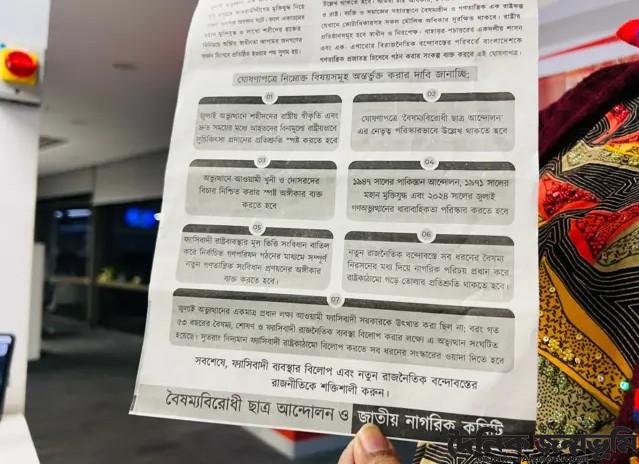 উল্লেখ থাকতে হবে।
প্রতিষ্ঠানসমূহ হবে স্বাধীন ও নিরপেক্ষ।
ঘোষণাপত্রে নিম্নোক্ত বিষয়সমূহ অন্তর্ভুক্ত করার দাবি জানাচ্ছি;
০১
জুলাই অভ্যুত্থানে শহীদদের রাষ্ট্রীয় স্বীকৃতি এবং
দ্রুত সময়ের মধ্যে আহতদের বিনামূল্যে রাষ্ট্রীয়ভাবে
সুচিকিৎসা প্রদানের প্রতিশ্রুতি স্পষ্ট করতে হবে
০২
ঘোষণাপত্রে 'বৈষম্যবিরোধী ছাত্র আন্দোলন'
এর নেতৃত্ব পরিষ্কারভাবে উল্লেখ থাকতে হবে
০৩
অভ্যুত্থানে আওয়ামী খুনী ও দোসরদের
বিচার নিশ্চিত করার স্পষ্ট অঙ্গীকার ব্যক্ত
করতে হবে
০৪
১৯৪৭ সালের পাকিস্তান আন্দোলন, ১৯৭১ সালের
মহান মুক্তিযুদ্ধ এবং ২০২৪ সালের জুলাই
গণঅভ্যুত্থানের ধারাবাহিকতা পরিষ্কার করতে হবে
০৫
ফ্যাসিবাদী রাষ্ট্রব্যবস্থার মূল ভিত্তি সংবিধান বাতিল
করে নির্বাচিত গণপরিষদ গঠনের মাধ্যমে সম্পূর্ণ
নতুন গণতান্ত্রিক সংবিধান প্রণয়নের অঙ্গীকার
ব্যক্ত করতে হবে।
০৬
নতুন রাজনৈতিক বন্দোবস্তে সব ধরনের বৈষম্য
নিরসনের মধ্য দিয়ে নাগরিক পরিচয় প্রধান করে
রাষ্ট্রকাঠামো গড়ে তোলার প্রতিশ্রুতি থাকতে হবে।
০৭
জুলাই অভ্যুত্থানের একমাত্র প্রধান লক্ষ্য আওয়ামী ফ্যাসিবাদী সরকারকে উৎখাত করা ছিল না; বরং গত
৫৩ বছরের বৈষম্য, শোষণ ও ফ্যাসিবাদী রাজনৈতিক ব্যবস্থা বিলোপ করার লক্ষ্যে এ অভ্যুত্থান সংঘটিত
হয়েছে। সুতরাং বিদ্যমান ফ্যাসিবাদী রাষ্ট্রকাঠামো বিলোপ করতে সব ধরনের সংস্কারের ওয়াদা দিতে হবে
সবশেষে, ফ্যাসিবাদী ব্যবস্থার বিলোপ এবং নতুন রাজনৈতিক বন্দোবস্তের
রাজনীতিকে শক্তিশালী করুন।
বৈষম্যবিরোধী ছাত্র আন্দোলন ও জাতীয় নাগরিক কমিটি
দৈনিক জন্মভূমি